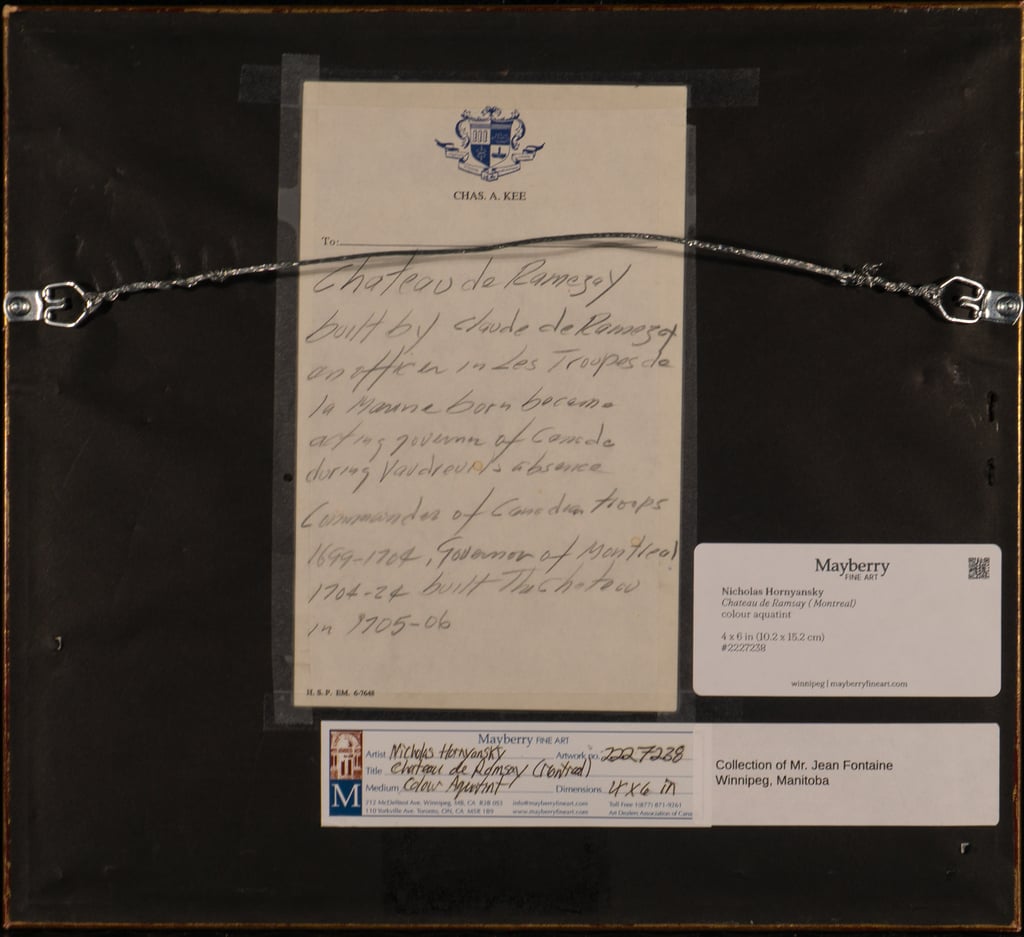 CHAS. A. KEE
To:
Chateau de Ramezay
built by Claude de Ramezay
an officer in Les Troupes de
la Marine born became
acting governor of Canada
during Vaudreuil's absence
Commander of Canadian troops
1699-1704, Governor of Montreal
1704-24 built The Chateau
in 1705-06
H. S. P. BM. 6-7648
Mayberry
FINE ART
Nicholas Hornyansky
Chateau de Ramsay (Montreal)
colour aquatint
4 x 6 in (10.2 x 15.2 cm)
#2227238
winnipeg | mayberryfineart.com
Mayberry FINE ART
Artist Nicholas Hornyansky Artwork no. 2227238
Title Chateau de Ramsay (Montreal)
Medium Colour Aquatint Dimensions 4x6 in
M
212 McDermot Ave. Winnipeg, MB, CA R3B 0S3 info@mayberryfineart.com Toll Free 1(877) 871-9261
110 Yorkville Ave. Toronto, ON, CA M5R 1B9 www.mayberryfineart.com Art Dealers Association of Cana
Collection of Mr. Jean Fontaine
Winnipeg, Manitoba